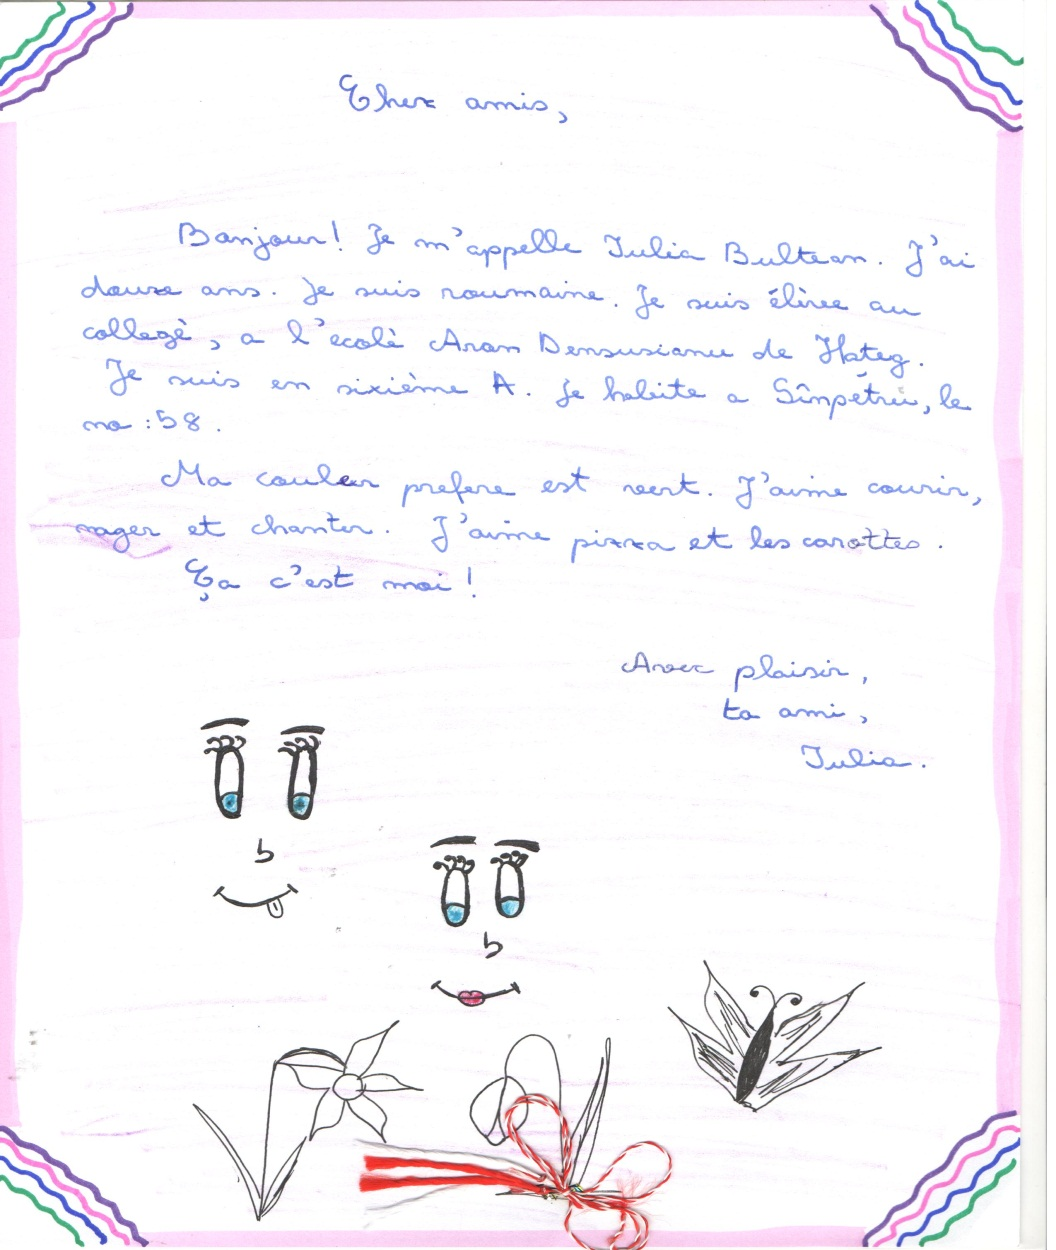 Cher amis,
Bonjour! Je m'appelle Iulia Bultean. J'ai
douze ans. Je suis roumaine. Je suis élève au
collegè, a l'ecolè Aron Densusianu de Hațeg.
Je suis en sixième A. Je habite a Sînpetru, le
no :58.
Ma couleur prefere est vert. J'aime courir,
nager et chanter. J'aime pizza et les carottes.
Ça c'est moi!
Avec plaisir,
ta ami,
Iulia.